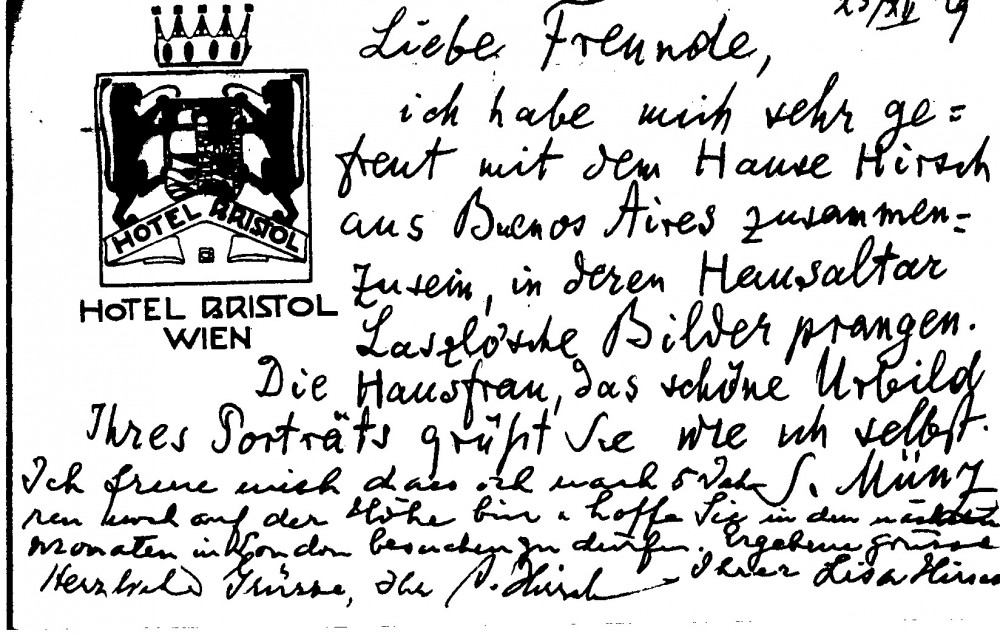 23/XII 29
Liebe Freunde,
ich habe mich sehr ge=
freut mit dem Hause Hirsch
aus Buenos Aires zusammen=
zusein, in deren Hausaltar
Laszlósche Bilder prangen.
Die Hausfrau, das schöne Urbild
Ihres Porträts grüßt Sie wie ich selbst.
S. Münz
HOTEL BRISTOL
HOTEL BRISTOL
WIEN
Ich freue mich dass ich nach 5 Jah-
ren noch auf der Höhe bin u hoffe Sie in den nächsten
Monaten in London besuchen zu dürfen. Ergebene Grüsse
Herzliche Grüsse, Ihr Hirsch Ihrer Lisa Hirsch